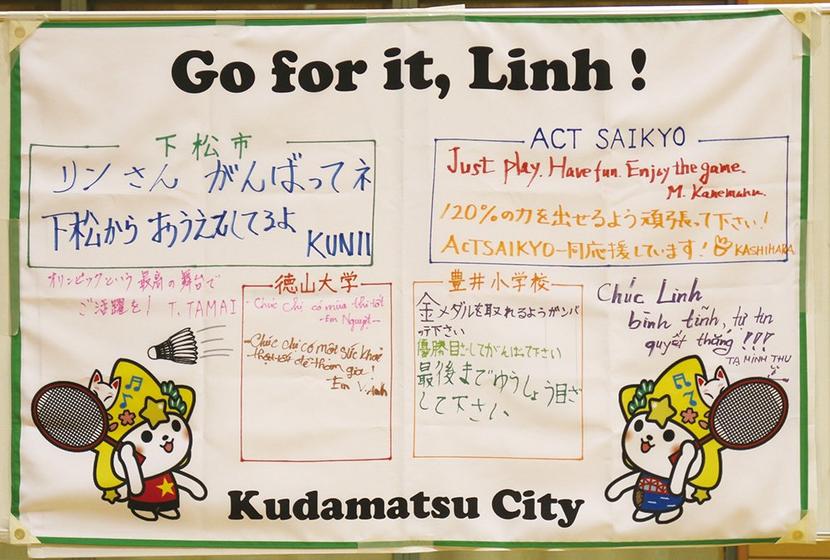 Go for it, Linh !
下松市
リンさん がんばってネ
下松から おうえんしてるよ
KUNII
ACT SAIKYO
Just play. Have fun. Enjoy the game.
M. Kanemaru.
120%の力を出せるよう頑張って下さい!
ACTSAIKYO一同応援しています! KASHIHARA
オリンピックという最高の舞台で
ご活躍を! T. TAMAI
徳山大学
Chúc chị có mùa thi tốt
-Em Nguyệt-
Chúc chị có một sức khoẻ
để tham gia!
-Em
豊井小学校
金メダルを取れるようガンバ
って下さい
優勝目ざしてがんばって下さい
最後までゆうしょう目ざ
して下さい
Chúc Linh
bình tĩnh, tự tin
quyết thắng !!!
TẠ MINH THU
Kudamatsu City